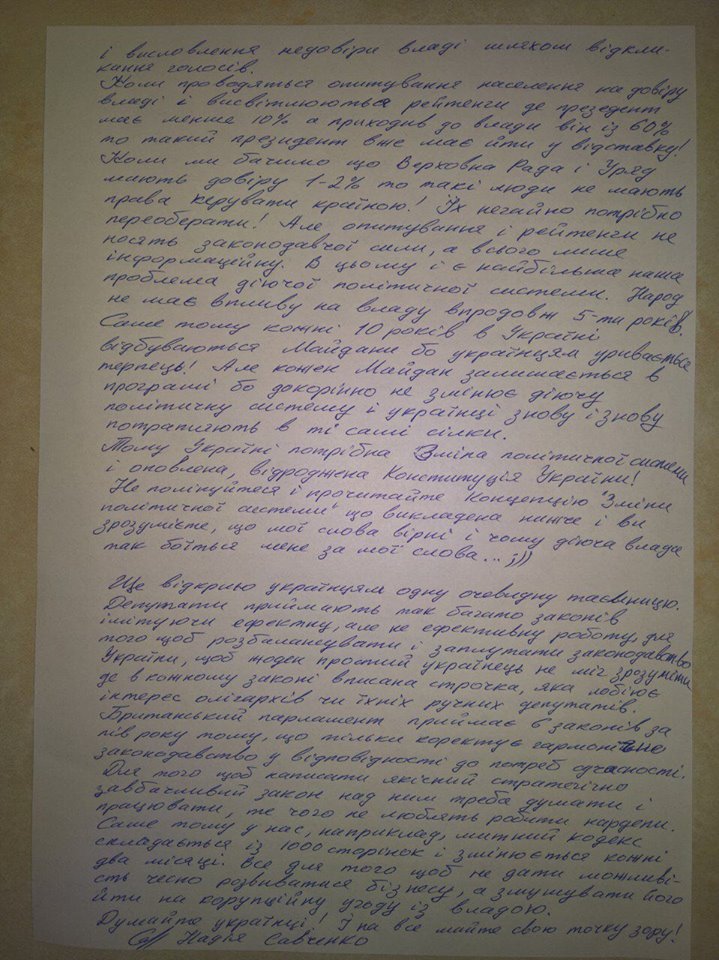 і висловлення недовіри владі шляхом відкли-
кання голосів.
Коли проводяться опитування населення на довіру
владі і висвітлюються рейтенги де презедент
має менше 10% а приходив до влади він із 60%
то такий президент вже має йти у відставку!
Коли ми бачимо що Верховна Рада і Уряд
мають довіру 1-2% то такі люди не мають
права керувати країною! Їх негайно потрібно
переоберати! Але опитування і рейтенги не
носять законодавчої сили, а всього лише
інформаційну. В цьому і є найбільша наша
проблема діючої політичної системи. Народ
не має впливу на владу впродовж 5-ти років!
Саме тому кожні 10 років в Україні
відбуваються Майдани бо українцям уривається
терпець! Але кожен Майдан залишається в
програші бо докорінно не змінює діючу
політичну систему і українці знову і знову
потрапляють в ті самі сілки.
Тому Україні потрібна Зміна політичної системи
і оновлена, відроджена Конституція України!
Не полінуйтеся і прочитайте Концепцію "Зміни
політичної системи" що викладена нижче і ви
зрозумієте, що мої слова вірні і чому діюча влада
так боїться мене за мої слова... ;))
Ще відкрию українцям одну очевидну таємницю.
Депутати приймають так багато законів
імітуючи ефектну, але не ефективну роботу, для
того щоб розбалансувати і заплутати законодавство
України, щоб жоден простий українець не міг зрозуміти
де в кожному законі вписана строчка, яка лобіює
інтерес олігархів чи їхніх ручних депутатів.
Британський парламент приймає 6 законів за
пів року тому, що тільки коректує гармонічно
законодавство у відповідності до потреб сучасності.
Для того щоб написати якісний стратегічно
завбачливий закон над ним треба думати і
працювати, те чого не люблять робити нардепи.
Саме тому у нас, наприклад, митний кодекс
складається із 1000 сторінок і змінюється кожні
два місяці. Все для того щоб не дати можливі-
сть чесно розвиватися бізнесу, а змушувати його
йти на корупційну угоду із владою.
Думайте українці! І на все майте свою точку зору!
Надія Савченко